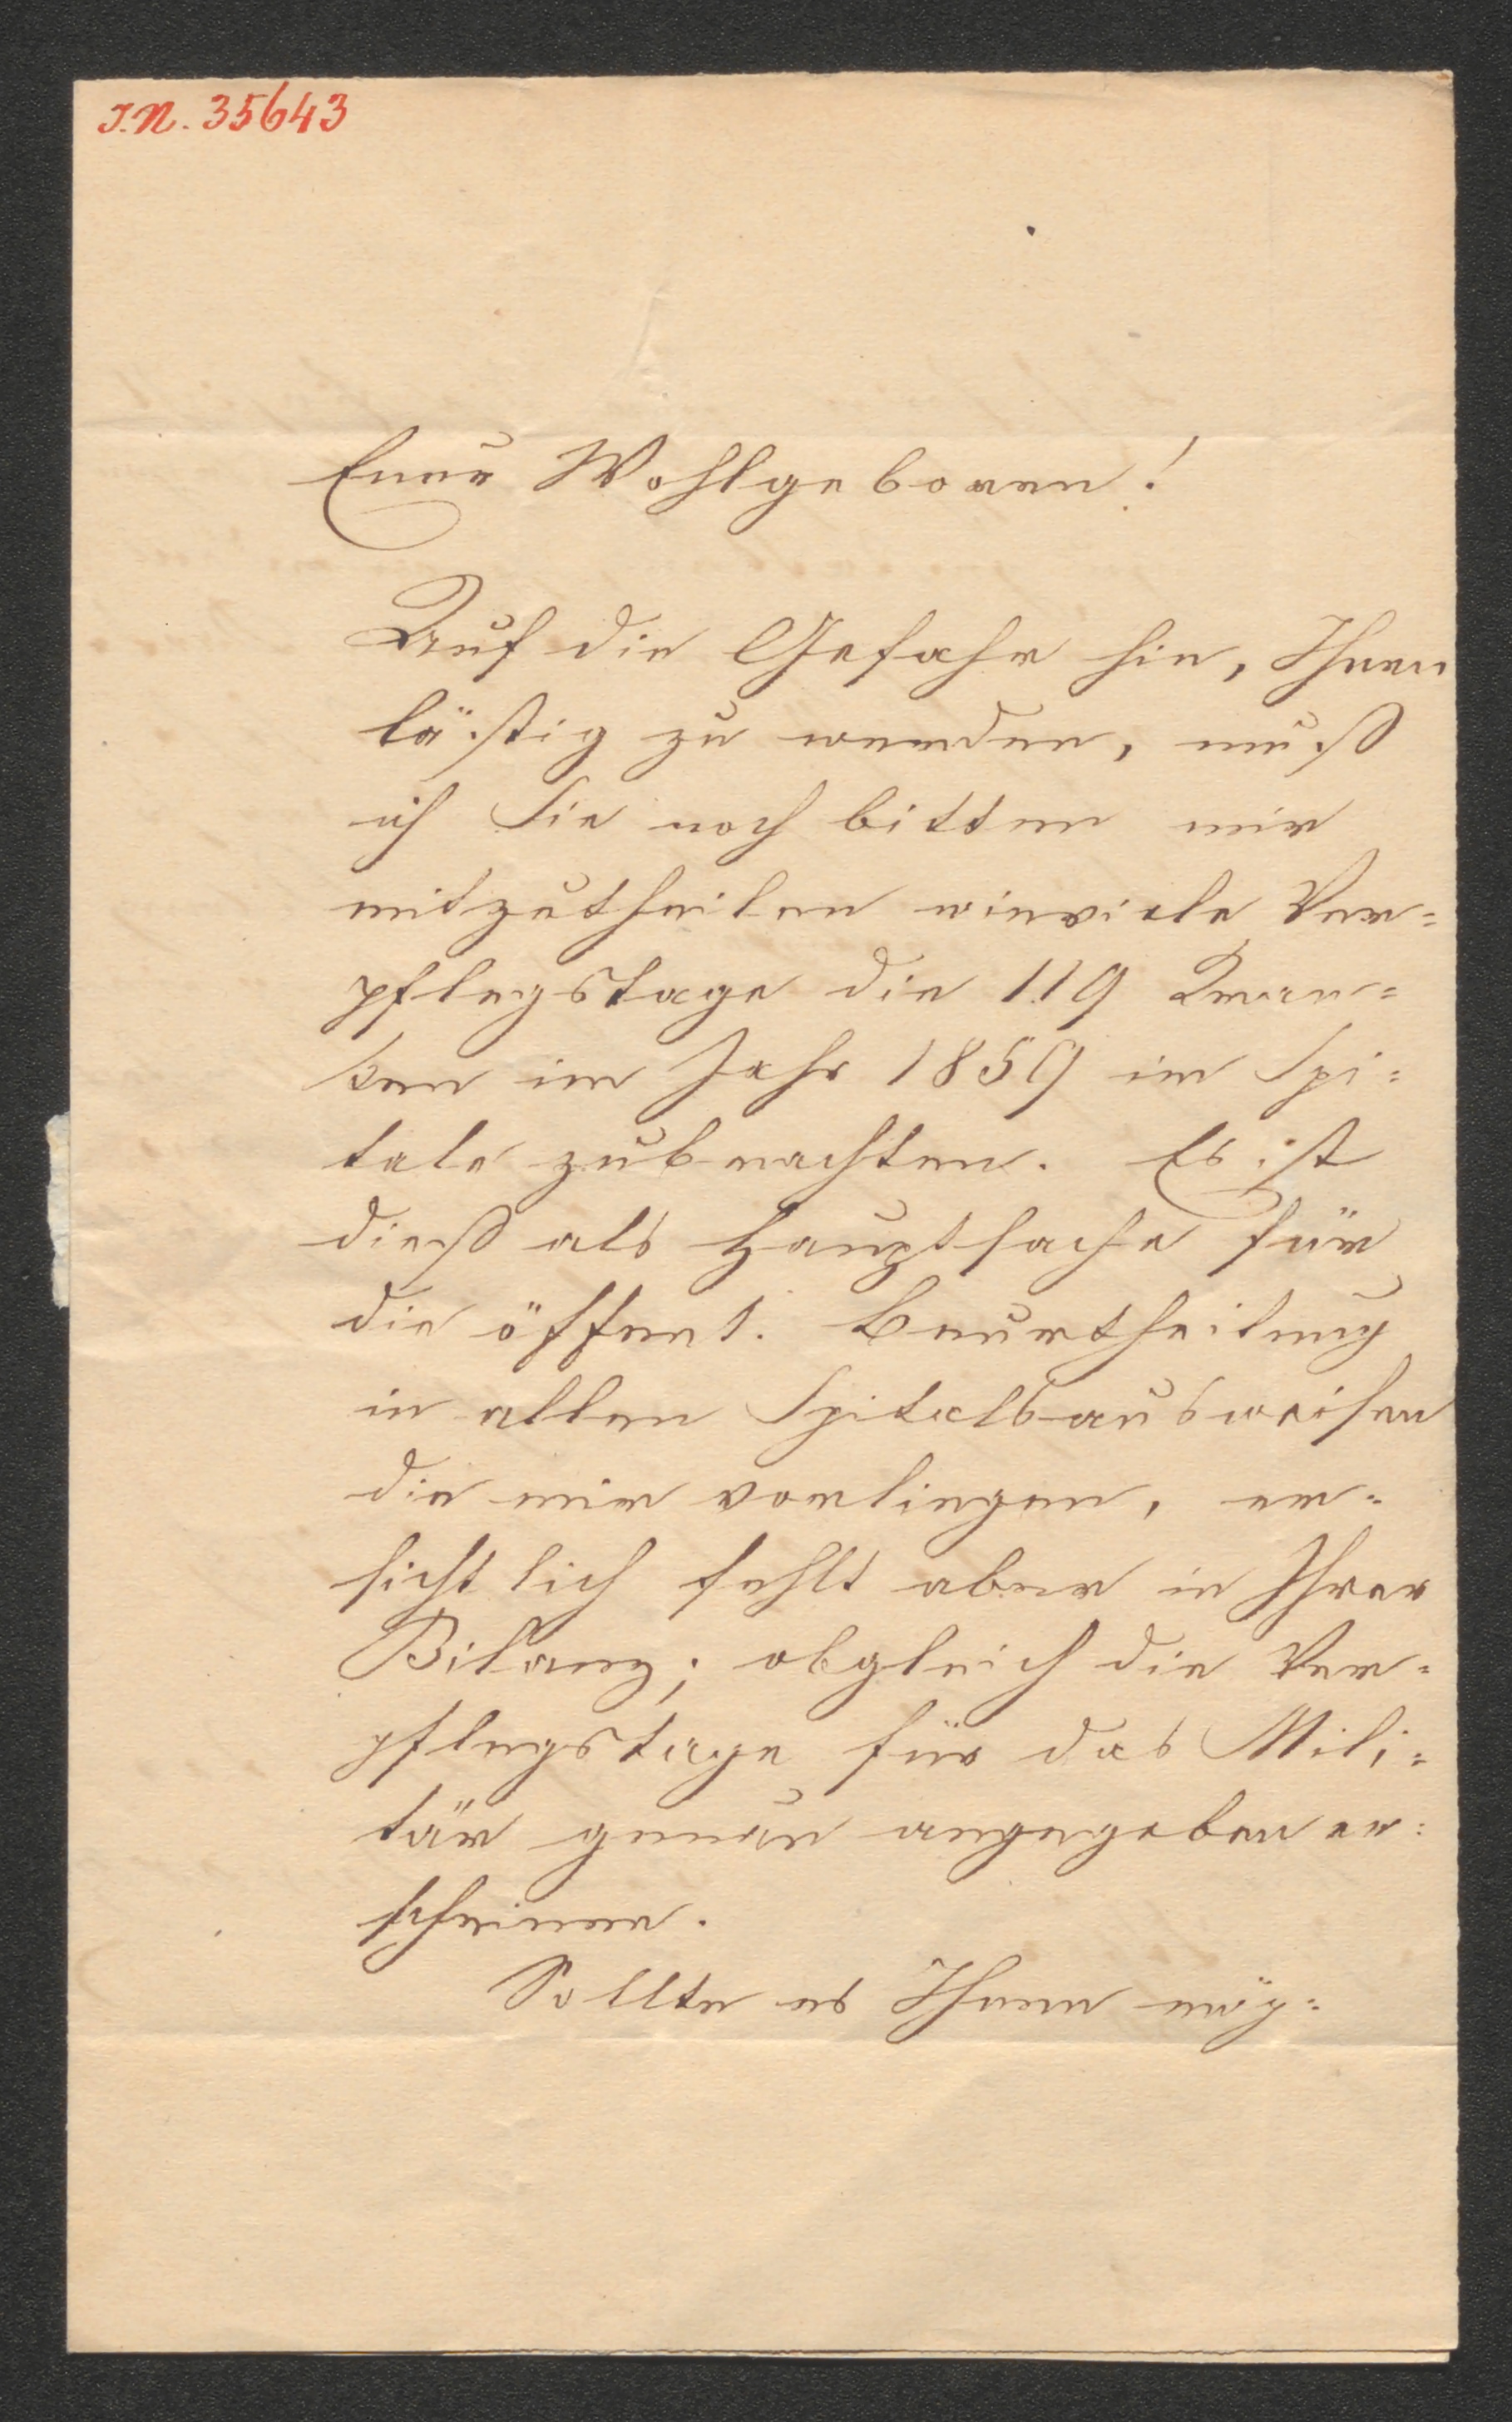 I.N. 35643
Euer Wohlgeboren!
Auf die Gefahr hin, Ihnen
lästig zu werden, muß
ich Sie noch bitten mir
mitzutheilen wieviele Ver=
pflegstage die 119 Kran=
ken im Jahr 1859 im Spi=
tale zubrachten. Es ist
dieß als Hauptsache für
die öffent. Beurtheilung
in allen Spitalsausweisen
die mir vorliegen, er=
sichtlich fehlt aber in Ihrer
Bilanz; obgleich die Ver=
pflegstage für das Mili=
tär genau angegeben er=
scheinen.
Sollte es Ihnen mög=